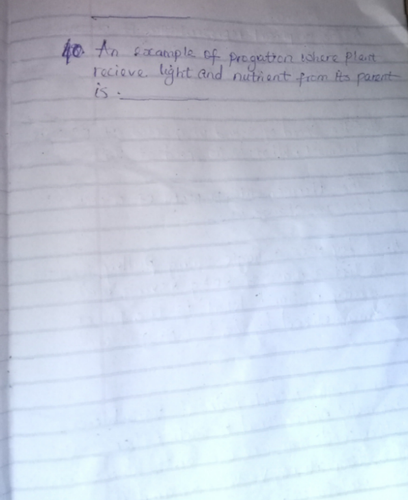 40. An example of progation where plant
recieve light and nutrient from its parent
is. ________